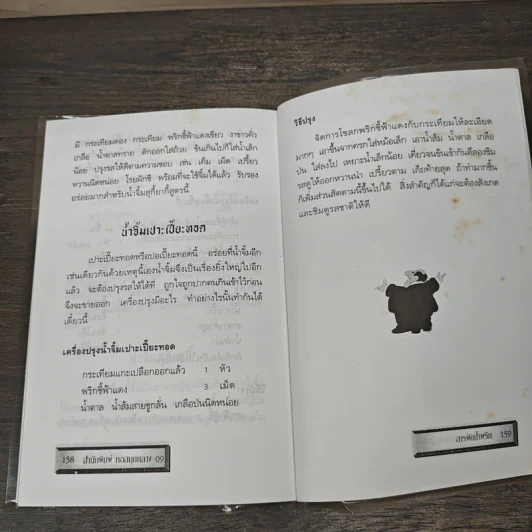 มี กระเทียมดอง กระเทียม พริกชี้ฟ้าแดงเขียว งาขาวคั่ว
เกลือ น้ำตาลทราย ตักออกใส่ถ้วย ข้นเกินไปก็ใส่น้ำเล็ก
น้อย ปรุงรสให้ดีตามความชอบ เช่น เค็ม เผ็ด เปรี้ยว
หวานนิดหน่อย โรยผักชี พร้อมที่จะใช้จิ้มได้แล้ว รับรอง
อร่อยมากสำหรับน้ำจิ้มสุกี้ยากี้สูตรนี้
น้ำจิ้มเปาะเปี๊ยะทอด
เปาะเปี๊ยะทอดหรือปอเปี๊ยะทอดนี้ อร่อยที่น้ำจิ้มอีก
เช่นเดียวกันด้วยเหตุนี้เองน้ำจิ้มจึงเป็นเรื่องยิ่งใหญ่ไปอีก
แล้ว จะต้องปรุงรสให้ได้ที่ ถูกใจถูกปากคนกินเข้าไว้ก่อน
จึงจะขายออก เครื่องปรุงมีอะไร ทำอย่างไรนั้นทำกันได้
เดี๋ยวนี้
เครื่องปรุงน้ำจิ้มเปาะเปี๊ยะทอด
กระเทียมแกะเปลือกออกแล้ว 1 หัว
พริกชี้ฟ้าแดง 3 เม็ด
น้ำตาล น้ำส้มสายชูกลั่น เกลือป่นนิดหน่อย
158 สำนักพิมพ์ หอสมุดกลาง 09
วิธีปรุง
จัดการโขลกพริกชี้ฟ้าแดงกับกระเทียมให้ละเอียด
มากๆ เอาขึ้นจากครกใส่หม้อเล็ก เอาน้ำส้ม น้ำตาล เกลือ
ป่น ใส่ลงไป เหยาะน้ำเล็กน้อย เคี่ยวจนข้นเข้ากันดีลองชิม
รสดูให้ออกหวานนำ เปรี้ยวตาม เค็มท้ายสุด ถ้าทำมากขึ้น
ก็เพิ่มส่วนสัดตามนี้ขึ้นไปได้ สิ่งสำคัญก็ได้แก่จะต้องสังเกต
และชิมดูรสชาติให้ดี
สารพัดน้ำพริก 159